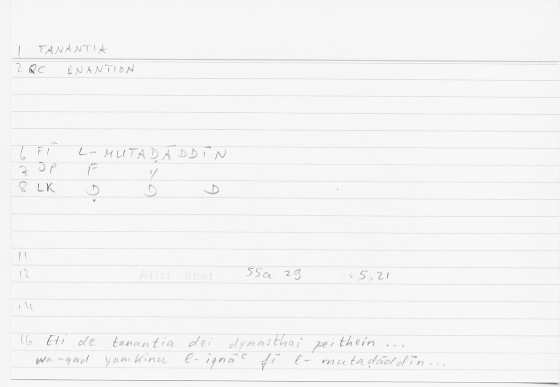 1 TANANTIA
2 QC ENANTION
6 FĪ L-MUTAḌĀDDĪN
7 OP F Y
8 LK Ḍ D D
11
12 Arist Rhet 55a 29 = 5.21
14
16 Eti de tanantia dei dynasthai peithein ...
wa-qad yumkinu l-iqnāʿ fī l-mutaḍāddīn ...